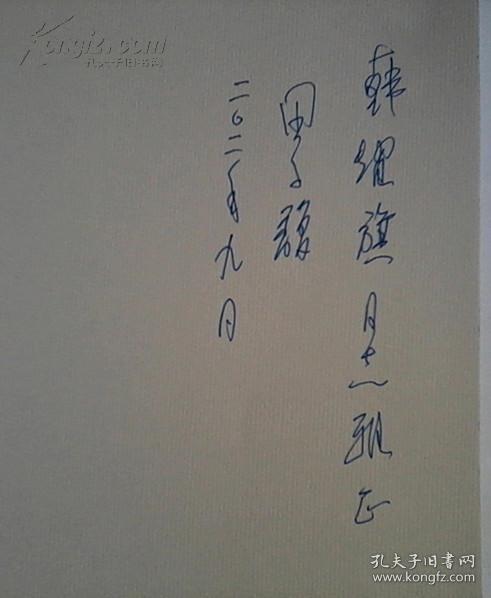 Kongfz.com
孔夫子旧书网
韩耀旗同志雅正
田子馥
二〇二年九月
孔夫子旧书网
www.kongfz.com